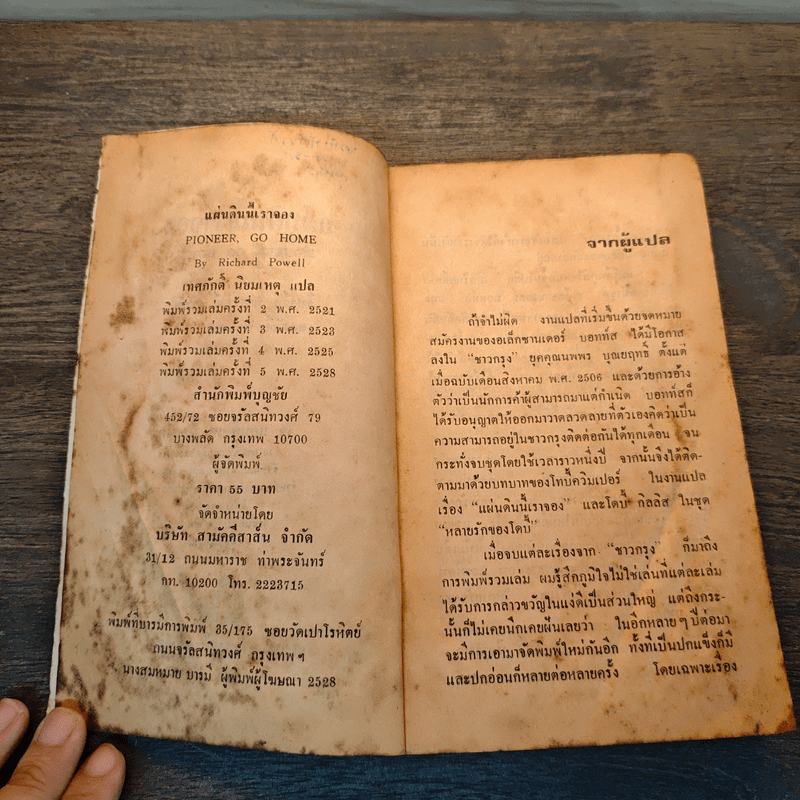 แผ่นดินนี้เราจอง
PIONEER, GO HOME
By Richard Powell
เทศภักดิ์ นิยมเหตุ แปล
พิมพ์รวมเล่มครั้งที่ 2 พ.ศ. 2521
พิมพ์รวมเล่มครั้งที่ 3 พ.ศ. 2523
พิมพ์รวมเล่มครั้งที่ 4 พ.ศ. 2525
พิมพ์รวมเล่มครั้งที่ 5 พ.ศ. 2528
สำนักพิมพ์บุญชัย
452/72 ซอยจรัลสนิทวงศ์ 79
บางพลัด กรุงเทพ 10700
ผู้จัดพิมพ์
ราคา 55 บาท
จัดจำหน่ายโดย
บริษัท สามัคคีสาส์น จำกัด
31/12 ถนนมหาราช ท่าพระจันทร์
กท. 10200 โทร. 2223715
พิมพ์ที่บารมีการพิมพ์ 35/175 ซอยวัดเปาโรหิตย์
ถนนจรัลสนิทวงศ์ กรุงเทพฯ
นางสมหมาย บารมี ผู้พิมพ์ผู้โฆษณา 2528
จากผู้แปล
ถ้าจำไม่ผิด งานแปลที่เริ่มขึ้นด้วยจดหมาย
สมัครงานของอเล็กซานเดอร์ บอทท์ส ได้มีโอกาส
ลงใน "ชาวกรุง" ยุคคุณนพพร บุณยฤทธิ์ ตั้งแต่
เมื่อฉบับเดือนสิงหาคม พ.ศ. 2506 และด้วยการอ้าง
ตัวว่าเป็นนักการค้าผู้สามารถมาแต่กำเนิด บอทท์สก็
ได้รับอนุญาตให้ออกมาวาดลวดลายที่ตัวเองคิดว่าเป็น
ความสามารถอยู่ในชาวกรุงติดต่อกันได้ทุกเดือน จน
กระทั่งจบชุดโดยใช้เวลาราวหนึ่งปี จากนั้นจึงได้ติด-
ตามมาด้วยบทบาทของโทบี้ควิมเปอร์ ในงานแปล
เรื่อง "แผ่นดินนี้เราจอง" และโดบี้ กิลลิส ในชุด
"หลายรักของโดบี้"
เมื่อจบแต่ละเรื่องจาก "ชาวกรุง" ก็มาถึง
การพิมพ์รวมเล่ม ผมรู้สึกภูมิใจไม่ใช่เล่นที่แต่ละเล่ม
ได้รับการกล่าวขวัญในแง่ดีเป็นส่วนใหญ่ แต่ถึงกระ-
นั้นก็ไม่เคยนึกเคยฝันเลยว่า ในอีกหลายๆปีต่อมา
จะมีการเอามาจัดพิมพ์ใหม่กันอีก ทั้งที่เป็นปกแข็งก็มี
และปกอ่อนก็หลายต่อหลายครั้ง โดยเฉพาะเรื่อง